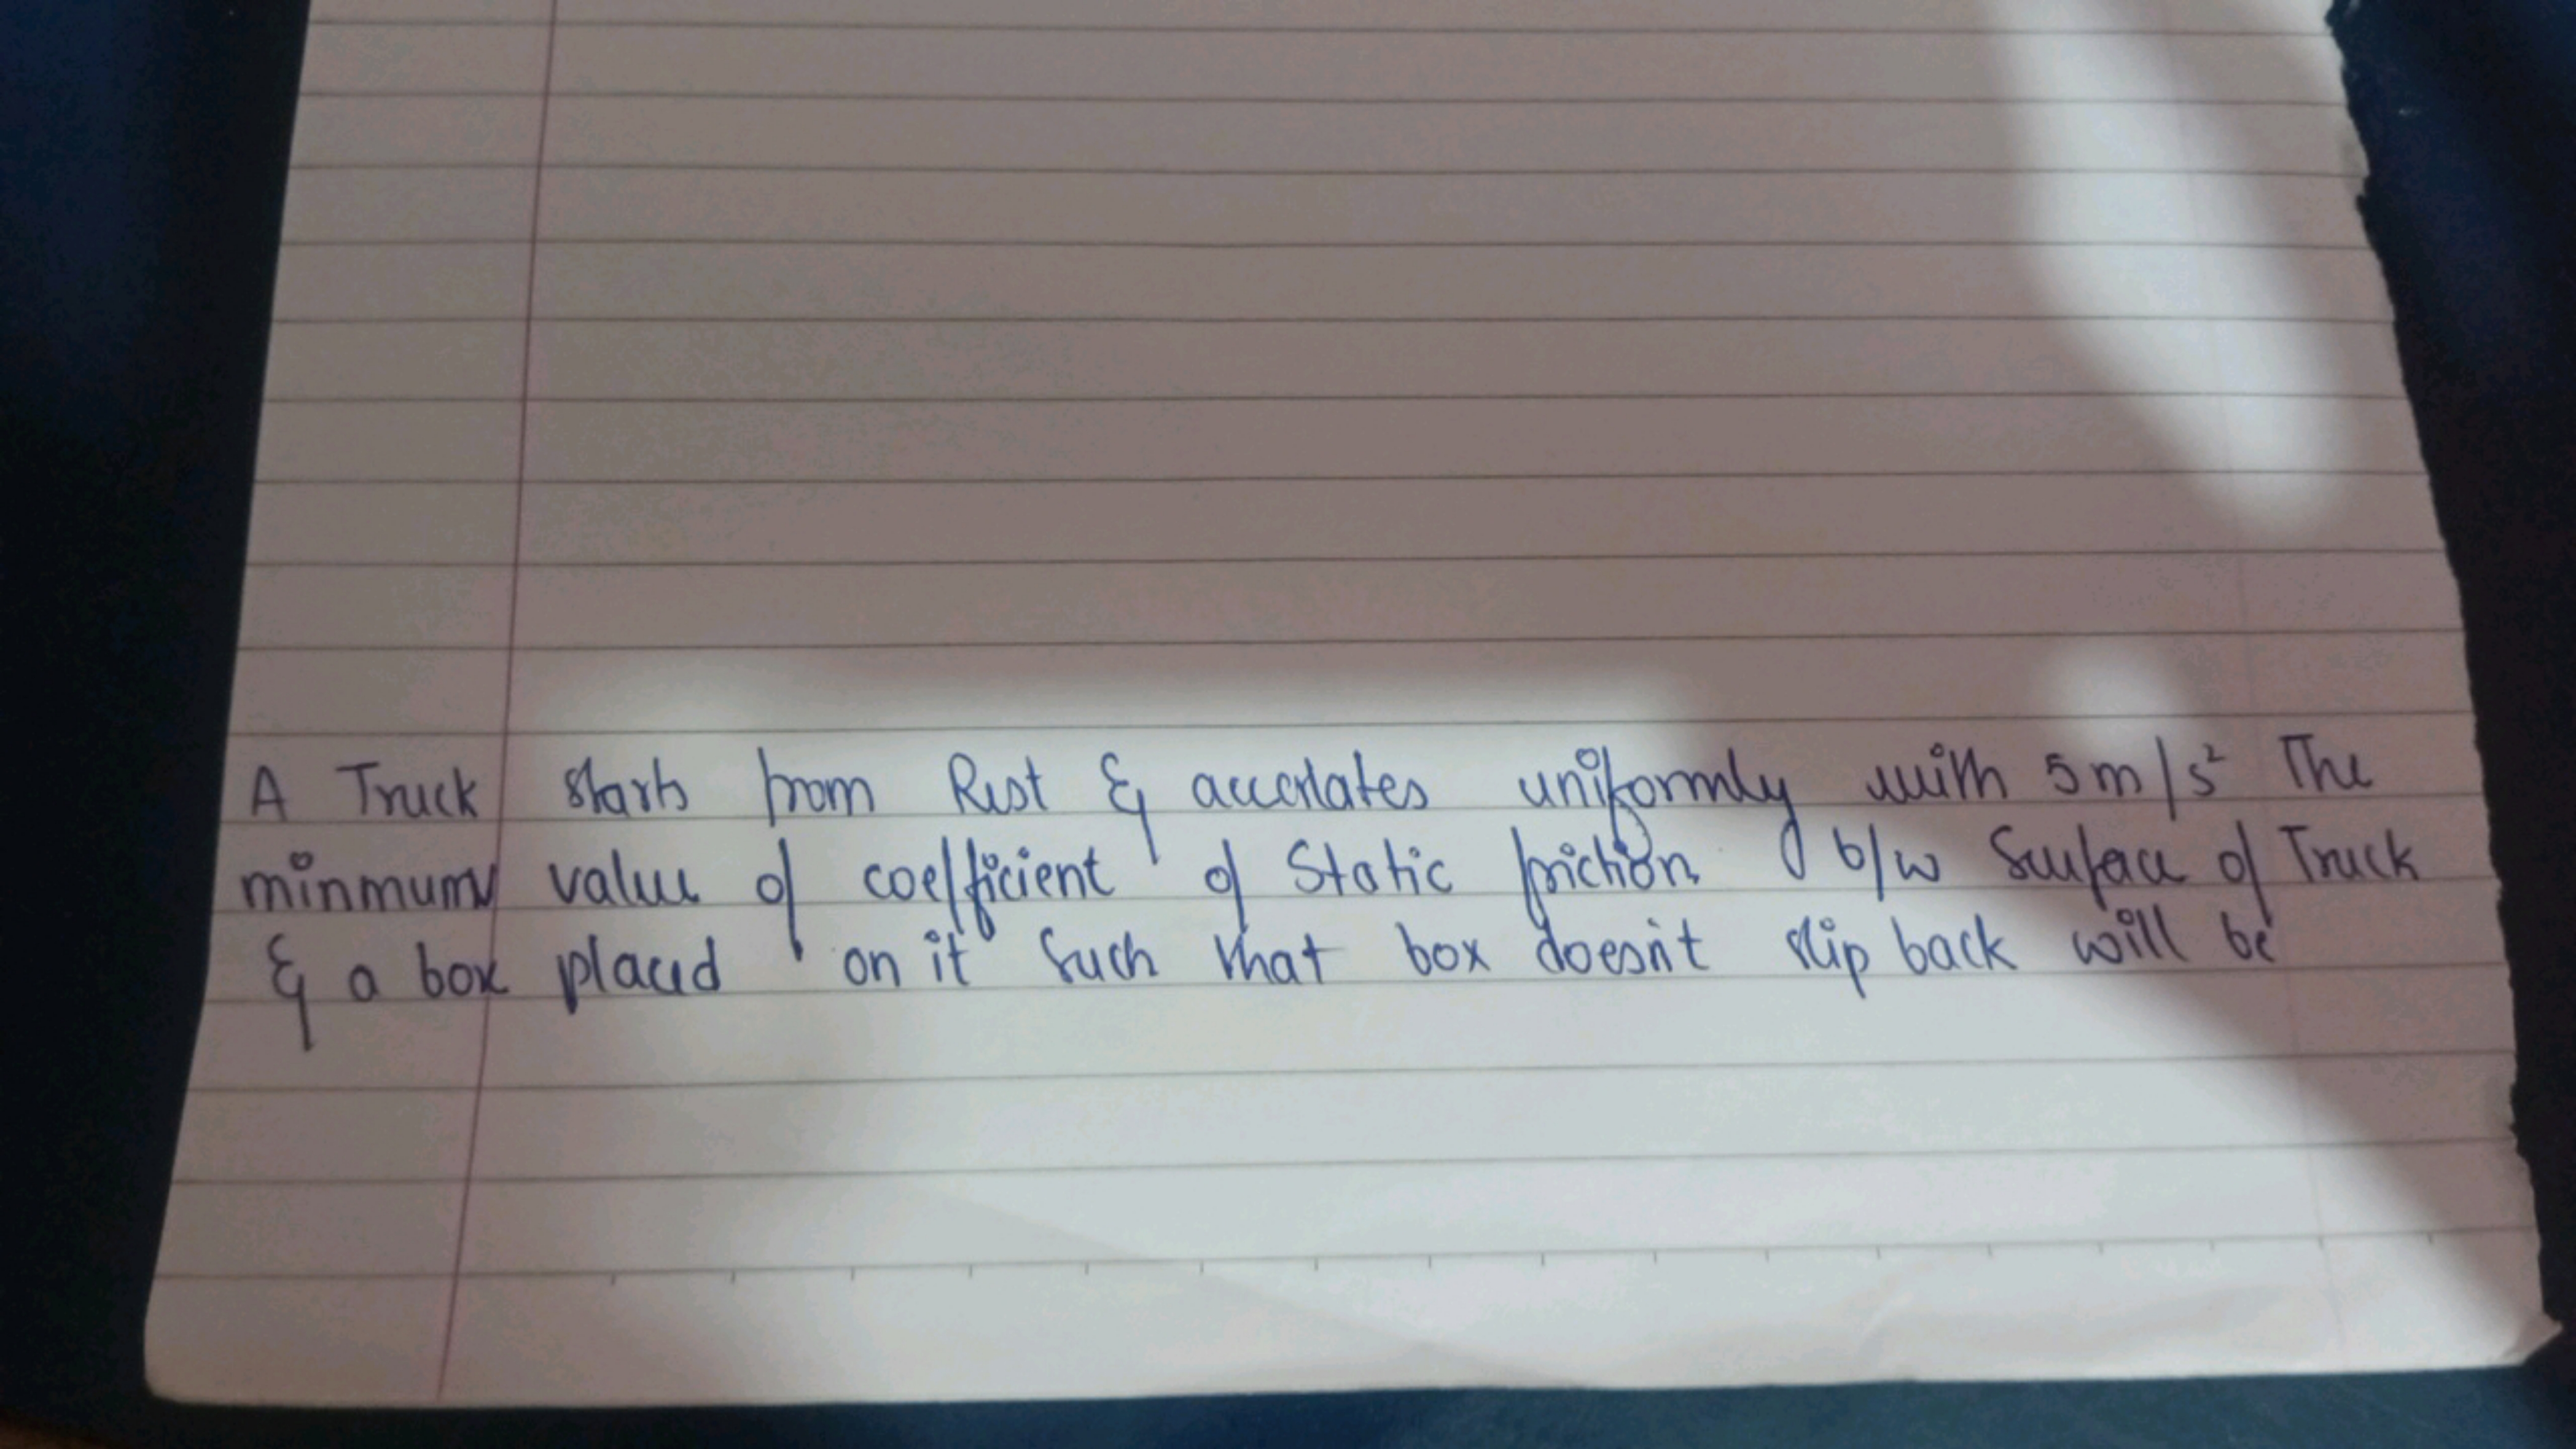 A Truck starts from Rest & accerlates uniformly with 5 m/s² The
minmum value of coefficient of Static friction b/w Surface of Truck
& a box placed on it such that box doesn't slip back will be